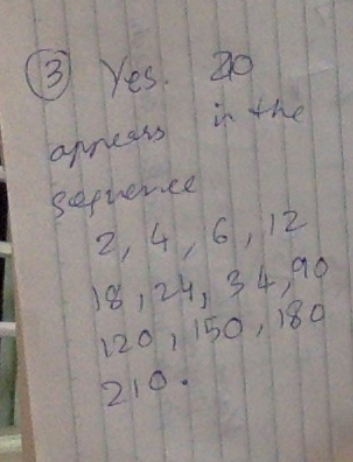 ③ Yes. 210
appears in the
sequence
2, 4, 6, 12
18, 24, 34, 90
120, 150, 180
210.